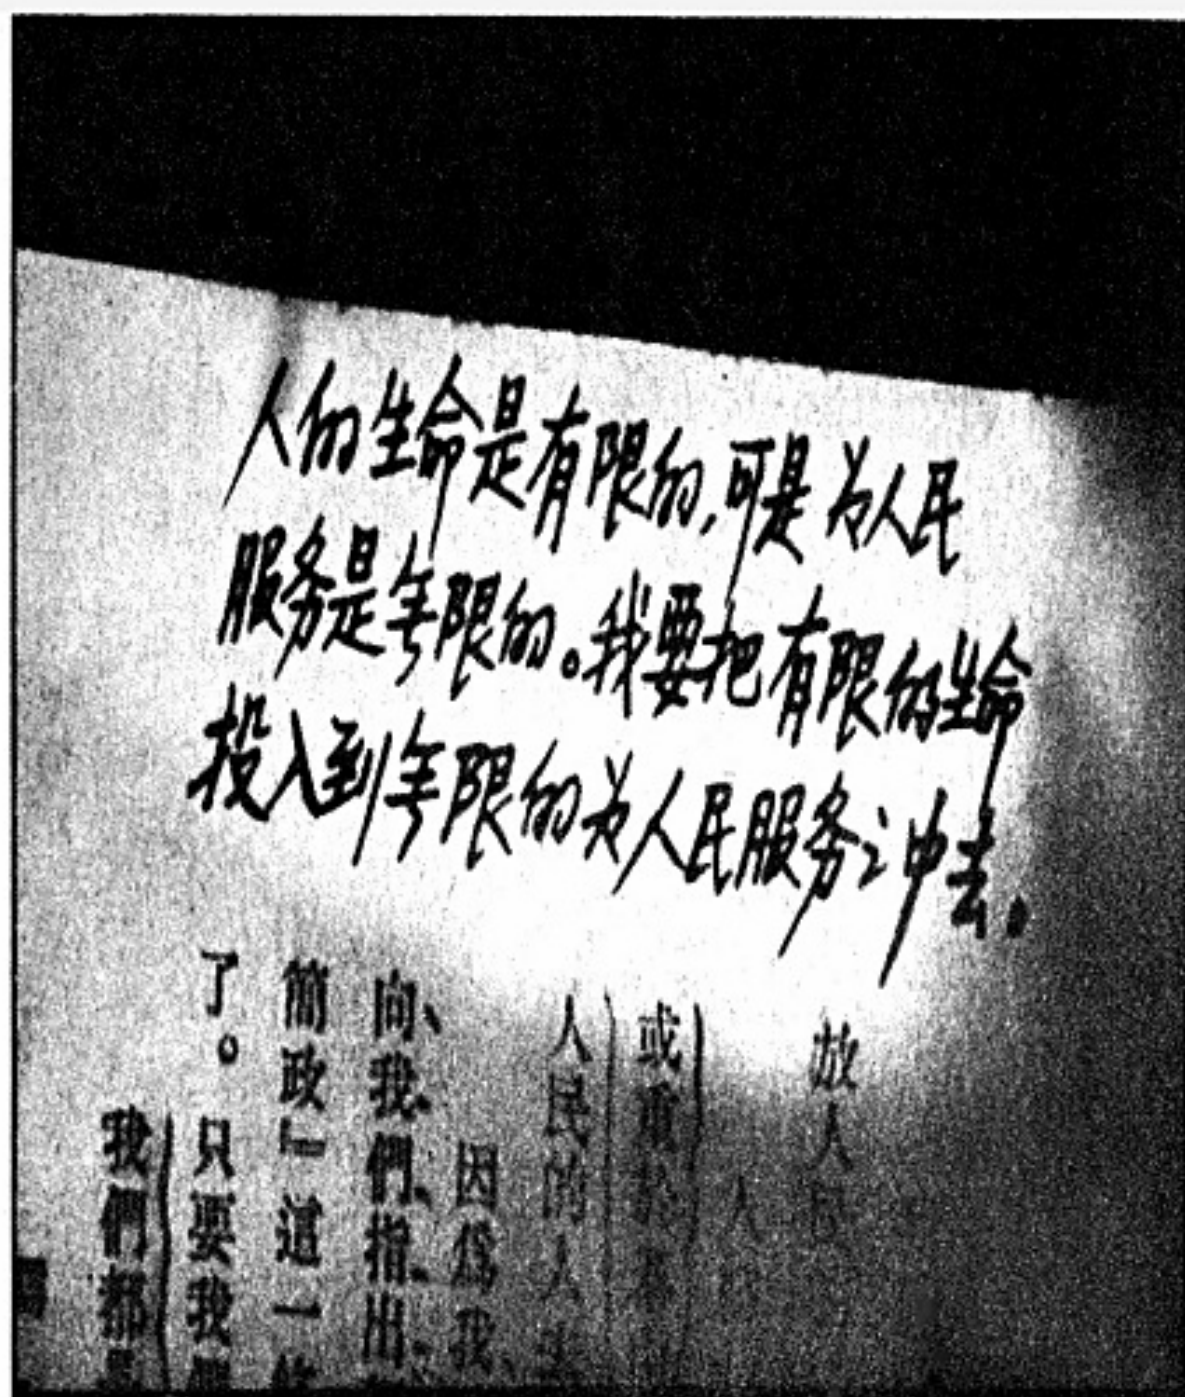 人的生命是有限的,可是为人民
服务是无限的。我要把有限的生命
投入到无限的为人民服务之中去.
放人民
人
或重於泰
人民的人
因爲我
向我們指出
簡政』這一
了。只要我
我們都